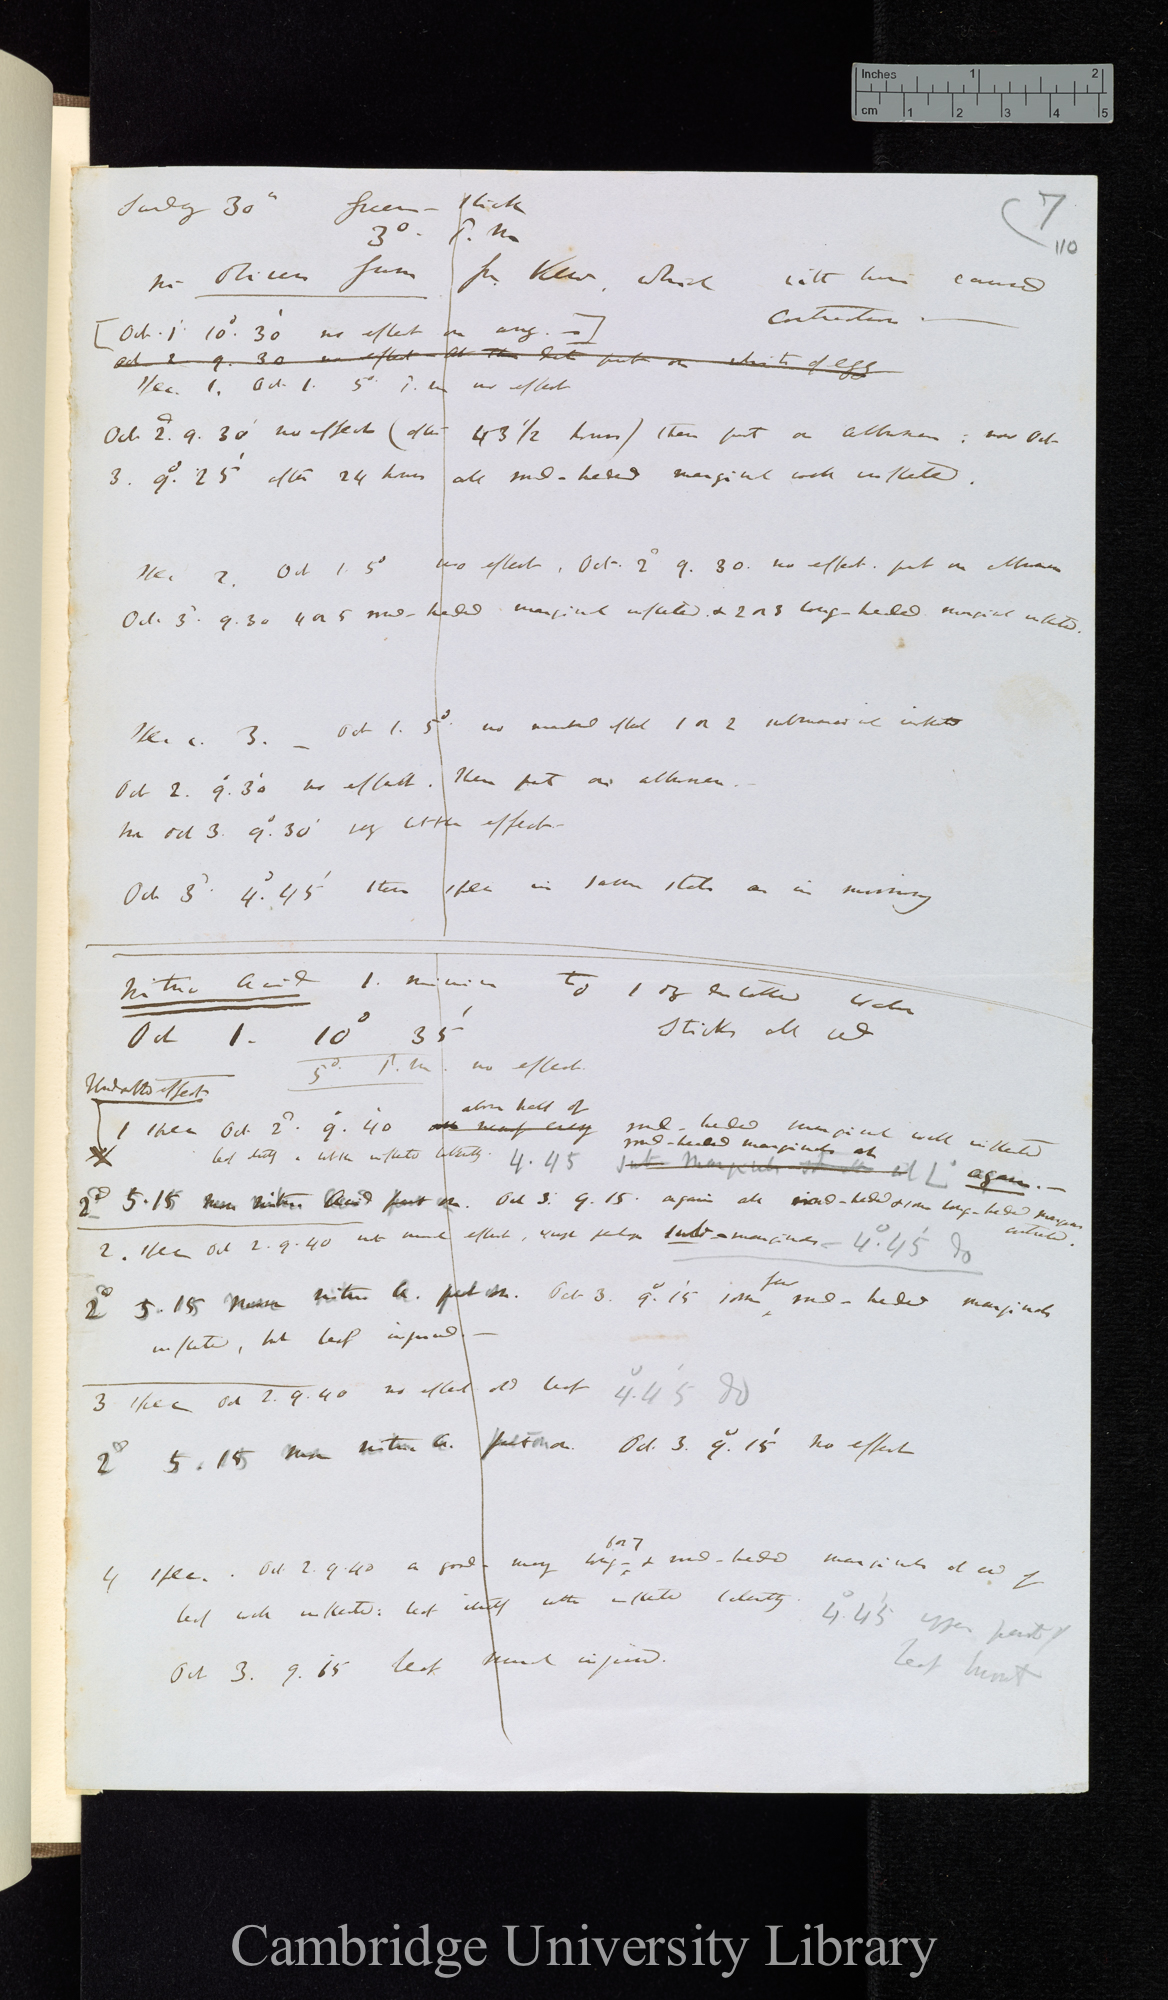 Inches 1 2
cm 1 2 3 4 5
7
110
Sunday 30th Green-stick
3°. P.m
Gum fr. Kew, which with him caused
contraction. —
[Oct. 1. 10°. 30' no effect on any. —]
Oct 2 9. 30 no effect put on white of egg
Spec. 1. Oct 1. 5° P.m no effect
Oct. 2. 9. 30' no effect (after 43 1/2 hours) then put on albumen: now Oct
3. 9°. 25' after 24 hours all med-headed marginal well inflected.
Spec 2. Oct 1. 5° no effect, Oct. 2° 9. 30. no effect. put on albumen
Oct. 3. 9.30 4 or 5 med-headed marginal inflected & 2 or 3 long-headed marginal inflected.
Spec. 3. — Oct 1. 5°. no marked effect 1 or 2 submarginal inflected
Oct 2. 9.30 no effect. then put on albumen. —
Oct 3. 9°. 30' very little effect —
Oct 3. 4°. 45' this spec in same state as in morning
Nitric Acid 1. minim to 1 oz distilled water
Oct 1. 10° 35' Sticks all red
5°. P.m. no effect.
above half of
1 Spec Oct 2. 9. 40 med-headed marginal well inflected
med-headed marginals all
leaf itself a little inflected laterally. 4.45 again. —
2° 5.15 more nitric acid put on. Oct 3. 9.15. again all med-headed & some long-headed marginals
inflected.
2. Spec Oct 2. 9.40 not much effect, except perhaps sub-marginals — 4°.45' do
2° 5.15 more nitric A. put on. Oct 3. 9°.15 some few med-headed marginals
inflected, but leaf injured. —
3 Spec Oct 2. 9.40 no effect old leaf 4.45 do
2° 5.15 more nitric A. put on. Oct. 3. 9°. 15' no effect
6 or 7
4 Spec. Oct 2. 9.40 a good many long- & med-headed marginals at end of
leaf well inflected: leaf itself little inflected laterally. 4°.45' upper part of
leaf burnt
Oct 3. 9. 15 leaf much injured.
Cambridge University Library